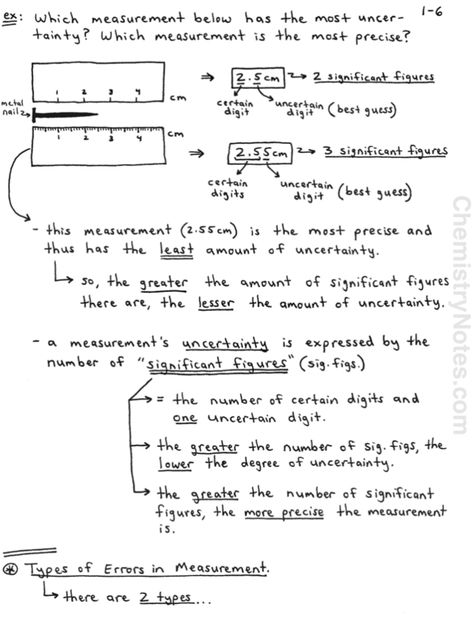 1-6
ex: Which measurement below has the most uncer-
tainty? Which measurement is the most precise?
1 2 3 4 cm
⇒ 2.5cm → 2 significant figures
certain digit uncertain digit (best guess)
metal nail
1 2 3 4 cm
⇒ 2.55cm → 3 significant figures
certain digits uncertain digit (best guess)
- this measurement (2.55cm) is the most precise and
thus has the least amount of uncertainty.
↳ so, the greater the amount of significant figures
there are, the lesser the amount of uncertainty.
- a measurement's uncertainty is expressed by the
number of "significant figures" (sig. figs.)
→ = the number of certain digits and
one uncertain digit.
→ the greater the number of sig. figs, the
lower the degree of uncertainty.
→ the greater the number of significant
figures, the more precise the measurement
is.
* Types of Errors in Measurement.
↳ there are 2 types...
ChemistryNotes.com